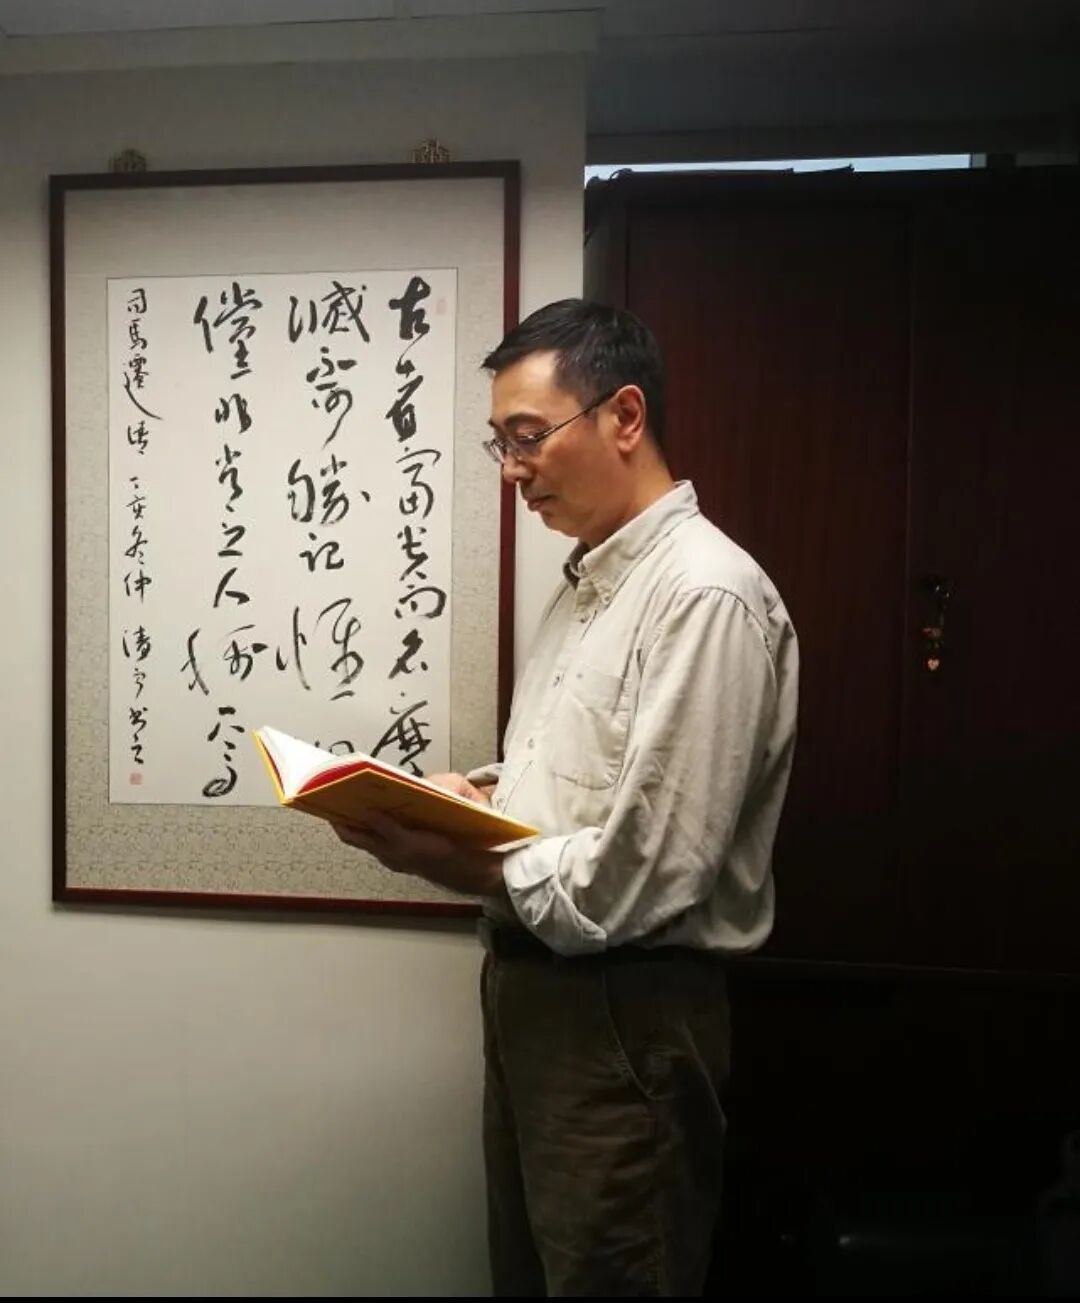 古者富貴而名摩
滅不可勝記惟
儻非常之人稱焉
司馬遷語 丁亥冬仲